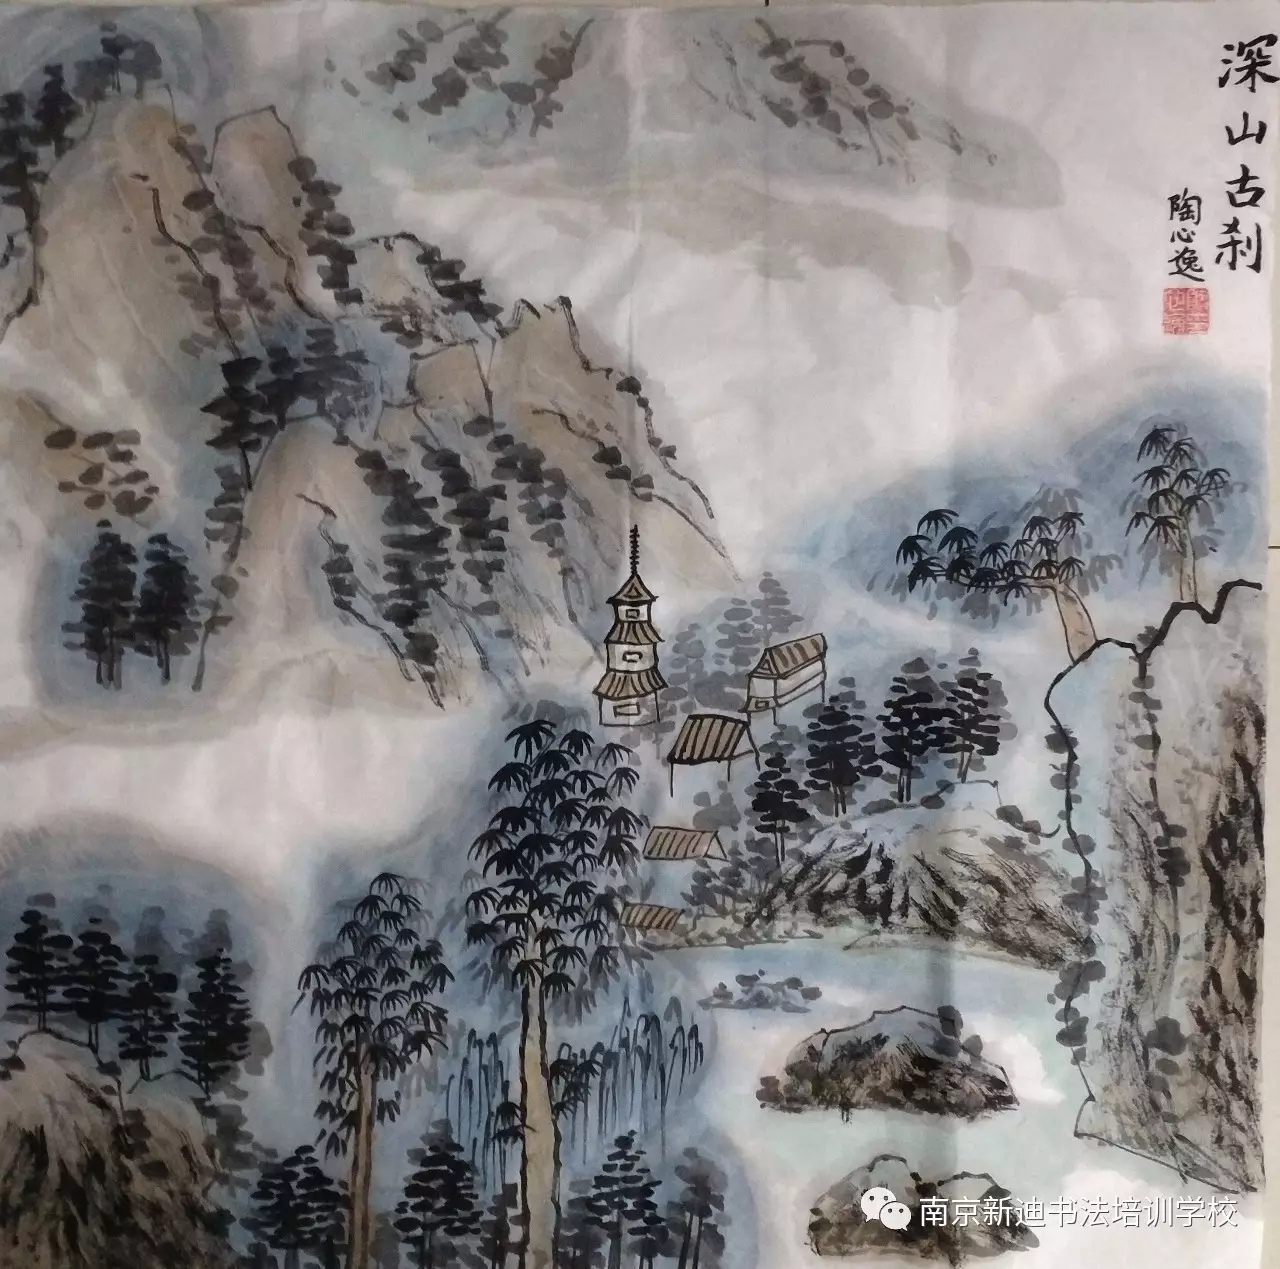 深山古刹
陶心逸
南京新迪书法培训学校